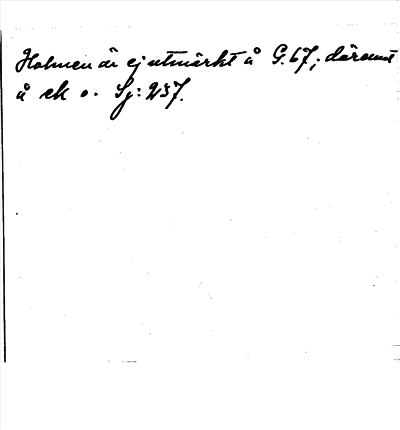 Holmen är ej utmärkt å G.67; däremot
å ek o. Sj: 257.